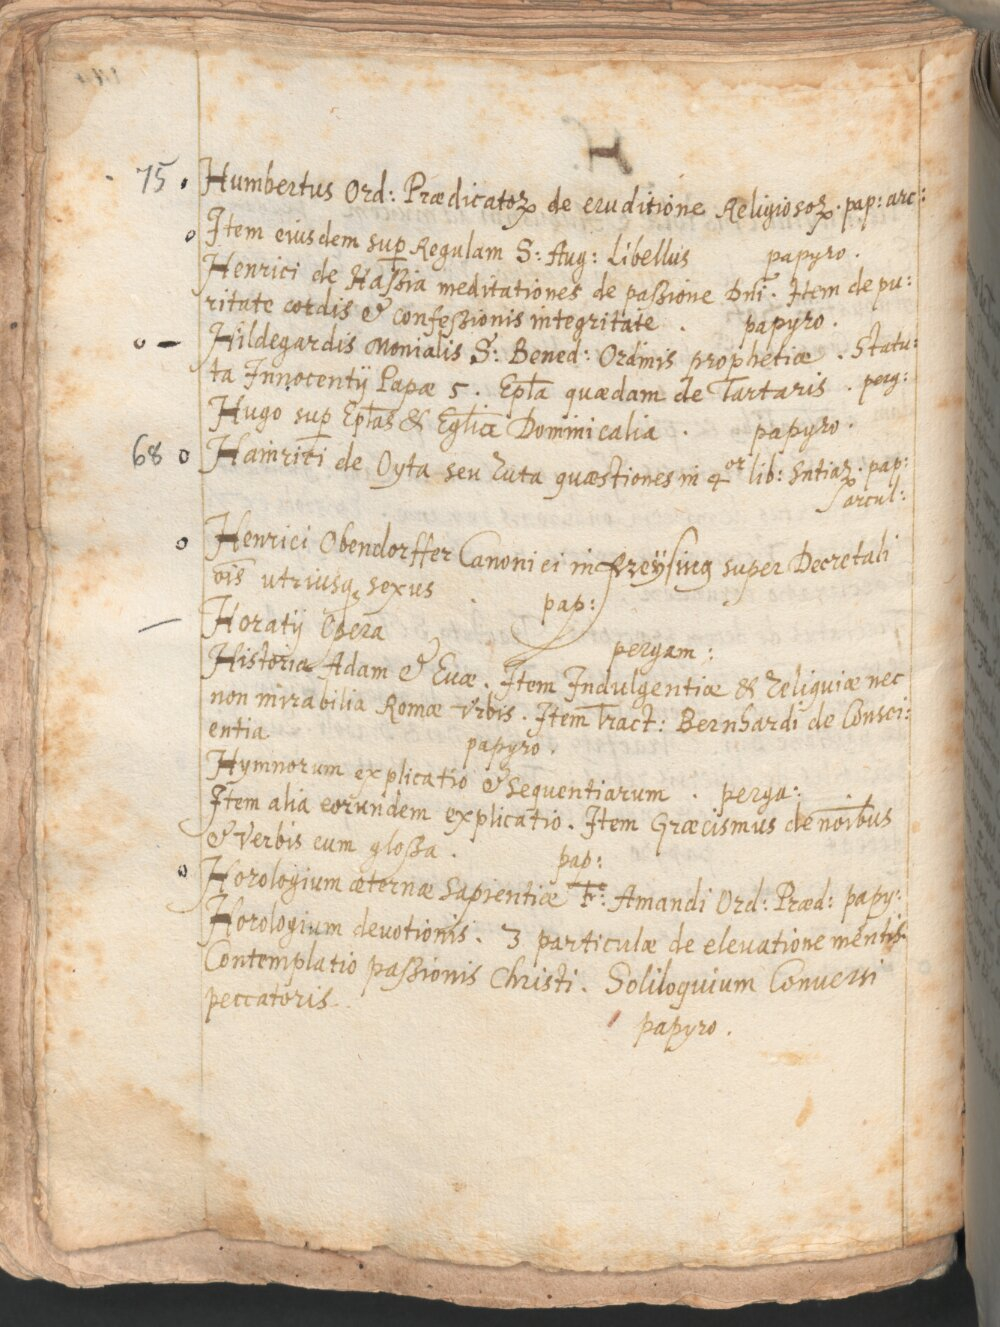 H.
75 . Humbertus Ord: Prædicatoꝝ de eruditione Religiosoꝝ. pap: arc:
o Item eiusdem sup Regulam S: Aug: Libellus papyro.
Henrici de Haßia meditationes de paßione Dnī. Item de pu:
ritate cordis & confeßionis integritate . papyro.
o — Hildegardis Monialis S: Bened: Ordinis prophetiæ . Statu:
ta Innocentij Papæ 5. Epła quædam de Tartaris . perg:
Hugo sup Epłas & Eglia Dominicalia . papyro.
68 o Hainrici de Oyta seu Iuta quæstiones in 4or lib: Sntiaꝝ. pap:
arcul:
o Henrici Obendorffer Canonici in Freÿsing super Decretali
ois utriusq sexus . pap:
— Horatij Opera pergam:
Historia Adam & Euæ. Item Indulgentiæ & Reliquiæ nec
non mirabilia Romæ Vrbis. Item Tract: Bernhardi de Consci:
entia. papyro.
Hymnorum explicatio & Sequentiarum . perga:
Item alia eorundem explicatio. Item Græcismus de noībus
& verbis cum gloßa . pap:
o Horologium æternæ Sapientiæ F: Amandi Ord: Præd: papy:
Horologium deuotionis. 3 particulæ de eleuatione mentis.
Contemplatio paßionis Christi. Soliloquium Conuersi
peccatoris. papyro.